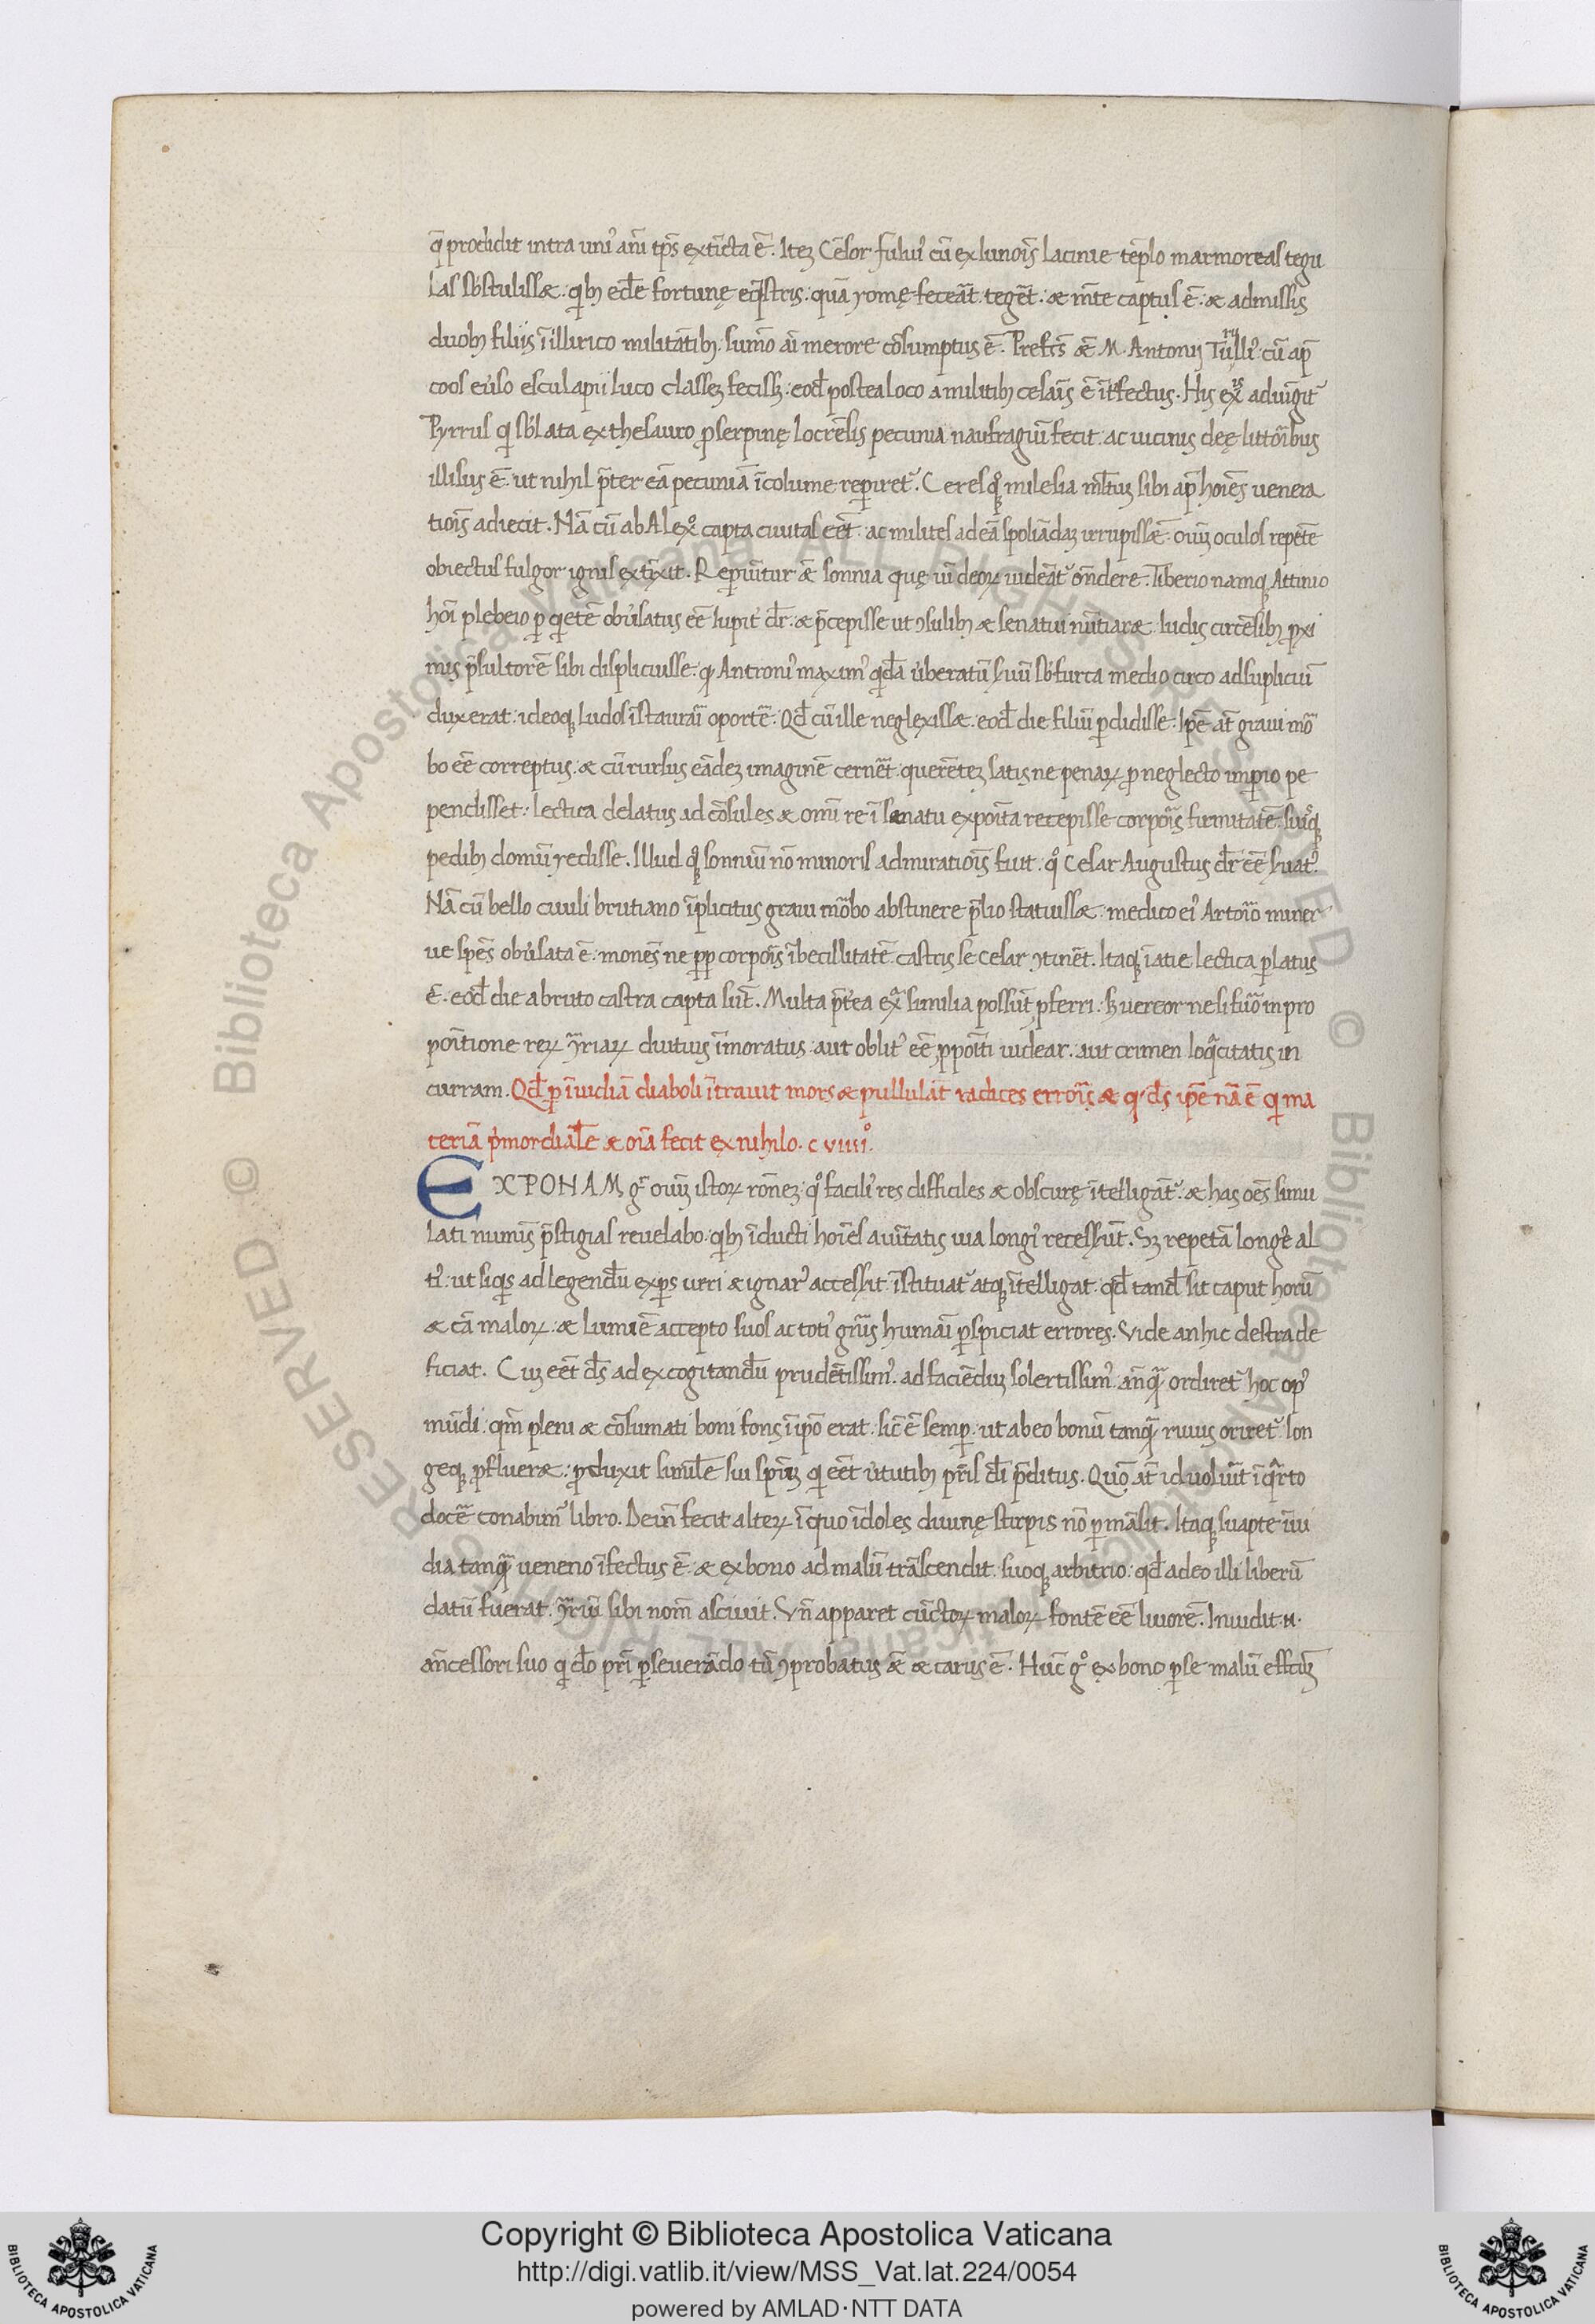 q̄ prodidit intra uniꝰ an̄i tp̄s extīcta ē. Iteʒ Cēsor fuluiꝰ cū ex Iunōis lacinie tēplo marmoreas tegu
las sb̓stulisset: qb; ede fortunę eq̄stris: quā romę fecēat tegēt: & mēte captus ē: & admissis
duob; filiis ī illirico militātib; sum̄o ai merore cōsumptus ē. Prefcs̄ & M. Antonij Tullꝰ: cū ap̄
coos eu̓so esculapii luco classeʒ fecissʒ: eod̄ postea loco a militib; cesāis ē īt̓fectus. His ex̄ adiūgit᷑
Pyrrus q̄ sb̓lata ex thesauro ꝓserpinę locrēsis pecunia naufragiū fecit: ac uicinis deę littōibus
illisus ē: ut nihil p̄ter eā pecuniā īcolume reperiret᷑. Ceres qꝫ milesia ml̄tuʒ sibi ap̄ hoīes uenera
tiōis adiecit. Nā cū ab Alexº capta ciuitas eēt: ac milites ad eā spoliādaʒ irrupissēt: oīuʒ oculos repēte
obiectus fulgor ignis extīxit. Reperiūtur & somnia quę uī deoꝝ uideāt᷑ on̄dere. Tiberio namqꝫ Attinio
hoī plebeio p̱ qetē obu̓satus eē Iupit̓ dr̄: & p̄cepisse ut ꝯsulib; & senatui nūtiaret: ludis circēsib; ꝓxi
mis p̄sultorē sibi displicuisse: q̓ Antroniꝰ maximꝰ qdā u̓beratū s̓uū sb̓ furca medio circo ad supliciū
duxerat: ideoqꝫ ludos īstaurāi oportē. Qd̄ cū ille neglexisset: eod̄ die filiū p̱didisse. Ip̄e at̄ graui mō
bo eē correptus: & cū rursus eādeʒ imaginē cernēt: querēteʒ satis ne penaꝝ ꝓ neglecto imp̱io pe
pendisset: lectica delatus ad cōsules & om̄i re ī senatu expoīta recepisse corpōis firmitatē: suīqꝫ
pedib; domū redisse. Illud qꝫ somniū nō minoris admiratiōis fuit: qº Cesar Augustus dr̄ eē s̓uatꝰ.
Nā cū bello ciuili brutiano īplicitus graui mōbo abstinere p̄lio statuisset: medico eiꝰ Artorio miner
ue spēs obu̓sata ē: monēs ne pp̱ corpōis ībecillitatē castris se cesar ꝯtinēt. Itaqꝫ ī atiē lectica p̱latus
ē: eod̄ die a bruto castra capta sūt. Multa p̄t̓ea exª similia possūt ꝓferri: sʒ uereor ne si fuō in pro
poītione reꝝ ꝯ̄riaꝝ diutius īmoratus: aut oblitꝰ eē ꝓpoīti uidear: aut crimen loqªcitatis in
curram. Qd̄ p̱ īuidiā diaboli ītrauit mors & pullulāt radices errōis & q̓ ds̄ ip̄e nā ē q̄ ma
teriā p̓mordialē & oīa fecit ex nihilo. c viiiiº.
EXPONAM gͬ oīuʒ istoꝝ rōneʒ: qº faciliꝰ res difficiles & obscurę ītelligāt᷑: & has oēs simu
lati numīs p̄stigias reuelabo: qb; īducti hoīes a uītatis uia longiꝰ recessūt. Sʒ repetā longe al
tiꝰ: ut si qs ad legendū exp̱s uēri & ignarꝰ accessit: īstituat᷑ atqꝫ ītelligat: qd̄ tand̄ sit caput horū
& cā maloꝝ: & lumīe accepto suos ac totiꝰ gn̄is humāi p̱spiciat errores. Vide an hic destra de
ficiat. Cuʒ eēt ds̄ ad excogitandū prudētissimꝰ: ad faciēduʒ solertissimꝰ: an̄qª ordiret᷑ hoc opꝰ
mūdi: qm̄ pleni & cōsumati boni fons ī ipo erat: sic̄ ē semp̱: ut ab eo bonū tanqª riuus oriret᷑: lon
geqꝫ ꝓflueret: ꝓduxit similē sui spm̄: q̄ eēt u̓tutib; pr̄is dī p̄ditus. Quō at̄ id uoluīt ī qrto
docē conabimꝰ libro. Dein fecit alteꝝ ī quo īdoles diuinę stirpis nō p̱māsit. Itaqꝫ suapte īui
dia tanqª ueneno īfectus ē: & ex bono ad malū trāscendit: suoqꝫ arbitrio: qd̄ a deo illi liberū
datū fuerat: ꝯ̄riū sibi nom̄ asciuit. Vn̄ apparet cūctoꝝ maloꝝ fontē eē liuorē. Inuidit .n.
an̄cessori suo q̄ dō pr̄i p̱seuerādo tū ꝯprobatus & & carus ē. Hūc gº ex bono p̱ se malū effctʒ
Copyright © Biblioteca Apostolica Vaticana
http://digi.vatlib.it/view/MSS_Vat.lat.224/0054
powered by AMLAD·NTT DATA